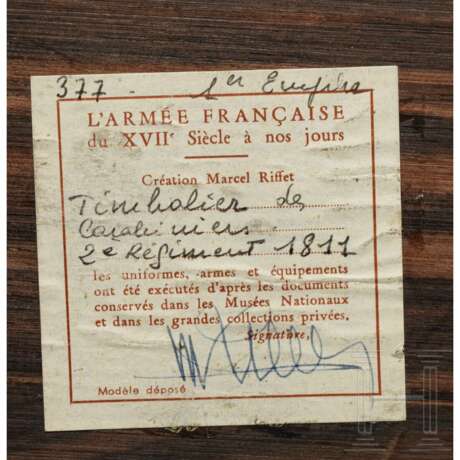 377 - 1er Empire
L'ARMÉE FRANÇAISE
du XVIIe Siècle à nos jours
Création Marcel Riffet
Timbalier de
Carabiniers
2e Régiment 1811
les uniformes, armes et équipements
ont été exécutés d'après les documents
conservés dans les Musées Nationaux
et dans les grandes collections privées.
Signature,
Modèle déposé